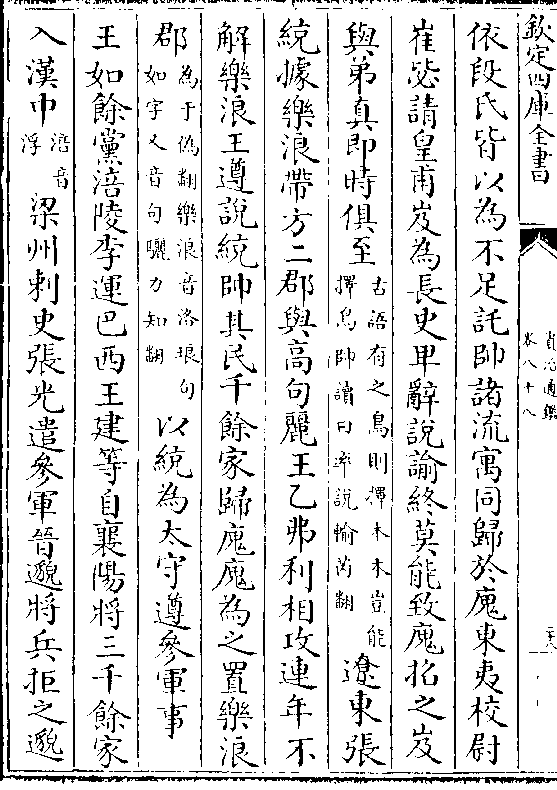 欽定四庫全書
資治通鑑
卷八十八
依段氏皆以為不足託帥諸流寓同歸於廆東夷校尉
崔毖請皇甫岌為長史卑辭說諭終莫能致廆招之岌
與弟真即時俱至古語有之鳥則擇木木豈能擇鳥帥讀曰率說輸芮翻遼東張
統據樂浪帶方二郡與高句麗王乙弗利相攻連年不
解樂浪王遵說統帥其民千餘家歸廆廆為之置樂浪
郡為于偽翻樂浪音洛琅句如字又音句驪力知翻以統為太守遵參軍事
王如餘黨涪陵李運巴西王建等自襄陽將三千餘家
入漢中涪音浮梁州刺史張光遣參軍晉邈將兵拒之邈